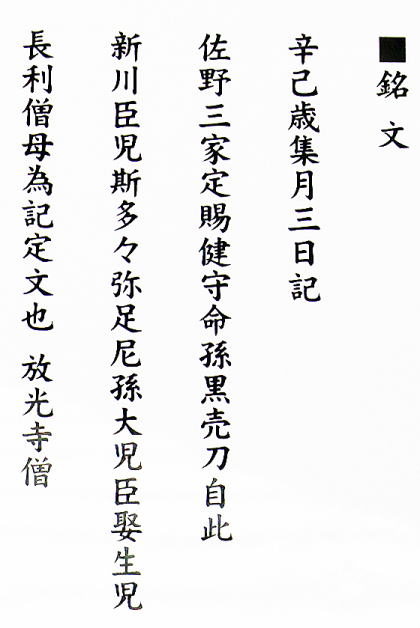 ■銘文
辛己歳集月三日記
佐野三家定賜健守命孫黒売刀自此
新川臣児斯多々弥足尼孫大児臣娶生児
長利僧母為記定文也 放光寺僧